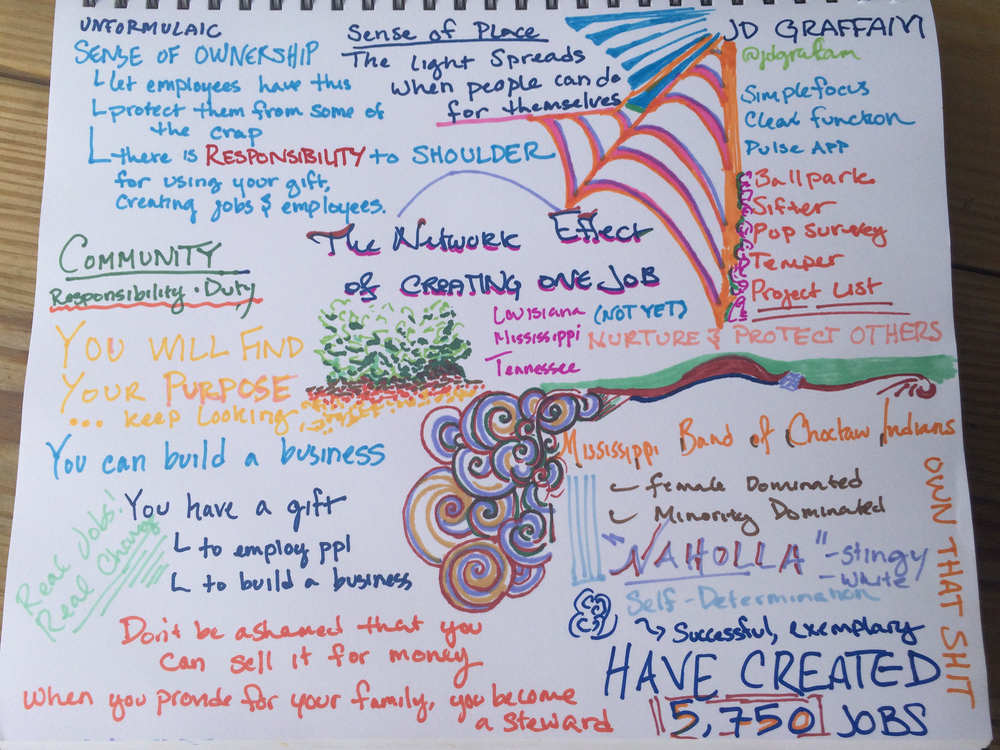 UNFORMULAIC
SENSE OF OWNERSHIP
let employees have this
protect them from some of
the crap
there is RESPONSIBILITY to SHOULDER
for using your gift,
creating jobs & employees.
Sense of Place
The light Spreads
when people can do
for themselves
JD GRAFFAM
@jdgraffam
Simplefocus
Clear function
Pulse APP
Ballpark
Sifter
Pop Survey
Temper
Project List
The Network Effect
of CREATING ONE JOB
Louisiana (NOT YET)
Mississippi
Tennessee
NURTURE & PROTECT OTHERS
COMMUNITY
Responsibility · Duty
YOU WILL FIND
YOUR PURPOSE
... keep looking
You can build a business
You have a gift
to employ ppl
to build a business
Real Jobs!
Real Change
Don't be ashamed that you
can sell it for money
When you provide for your family, you become
a steward
Mississippi Band of Choctaw Indians
female Dominated
Minority Dominated
"NAHOLLA" - stingy
- white
Self-Determination
Successful, exemplary
HAVE CREATED
5,750 JOBS
OWN THAT SHIT